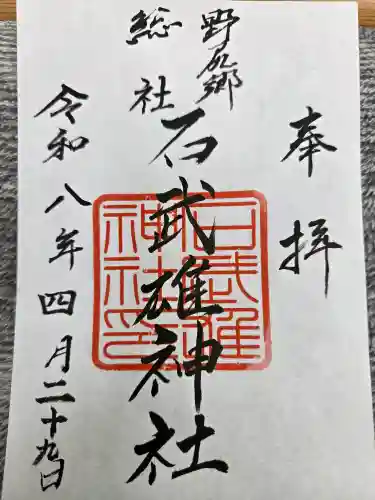 奉拝
野尻郷
総社
石武雄神社
令和八年四月二十九日
石武雄神社印